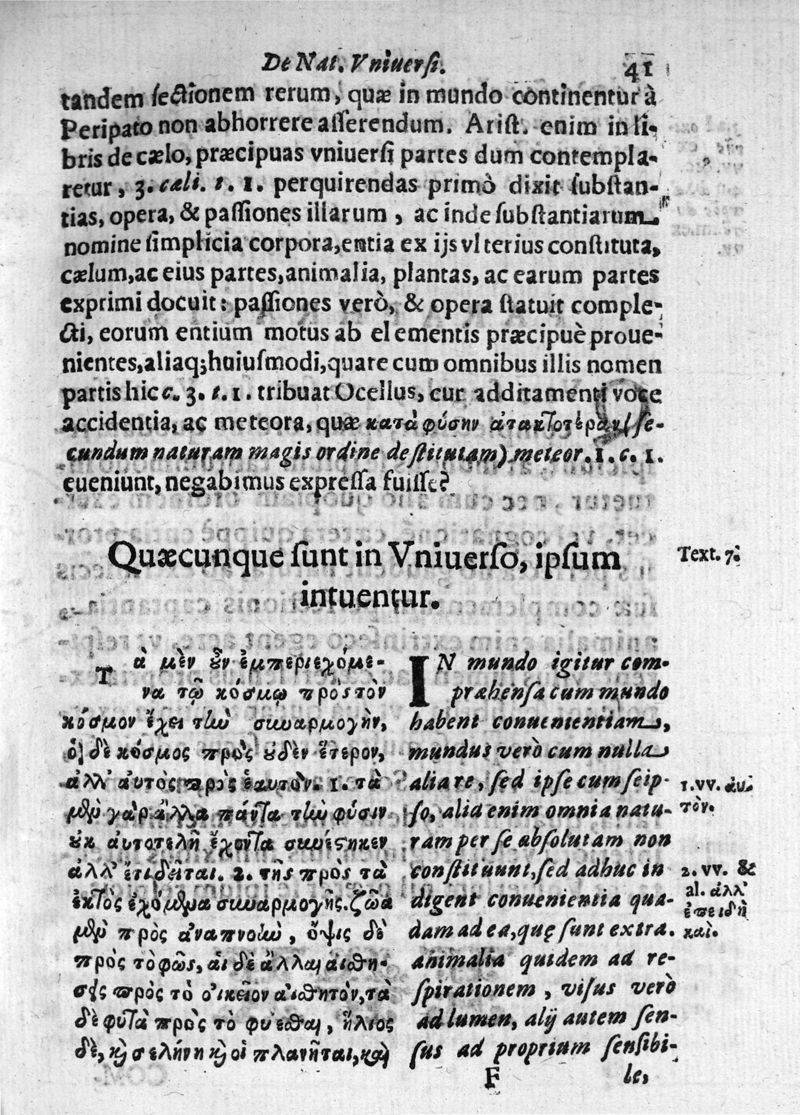 De Nat. Vniuerſi. 41
tandem ſectionem rerum, quæ in mundo continentur à
Peripato non abhorrere aſſerendum. Ariſt. enim in li-
bris de cælo, præcipuas vniuerſi partes dum contempla-
retur, 3. cæli. t. 1. perquirendas primò dixit ſubſtan-
tias, opera, & paſſiones illarum, ac inde ſubſtantiarum
nomine ſimplicia corpora, entia ex ijs vlterius conſtituta,
cælum, ac eius partes, animalia, plantas, ac earum partes
exprimi docuit: paſſiones verò, & opera ſtatuit comple-
cti, eorum entium motus ab elementis præcipuè proue-
nientes, aliaq; huiuſmodi, quare cum omnibus illis nomen
partis hic c. 3. t. 1. tribuat Ocellus, cur additamenti voce
accidentia, ac meteora, quæ κατὰ φύσην ἀτακτοτέραν (ſe-
cundum naturam magis ordine deſtitutam) meteor. 1. c. 1.
eueniunt, negabimus expreſſa fuiſſe?
Quæcunque ſunt in Vniuerſo, ipſum
intuentur.
Text. 7.
Τὰ μὲν οὖν ἐμπεριεχόμε-
να τῷ κόσμῳ πρὸς τὸν
κόσμον ἔχει τὴν συναρμογὴν,
ὁ δὲ κόσμος πρὸς οὐδὲν ἕτερον,
ἀλλ' αὐτὸς πρὸς ἑαυτόν. 1. τὰ
μὲν γὰρ ἄλλα πάντα τὴν φύσιν
οὐκ αὐτοτελῆ ἔχοντα συνέστηκεν
ἀλλ' ἔτι δεῖται. 2. τῆς πρὸς τὰ
ἐκτὸς ἐχόμενα συναρμογῆς. ζῶα
μὲν πρὸς ἀναπνοὴν, ὄψις δὲ
πρὸς τὸ φῶς, αἱ δὲ ἄλλαι αἰσθή-
σεις πρὸς τὸ οἰκεῖον αἰσθητόν, τὰ
δὲ φυτὰ πρὸς τὸ φύεσθαι, ἥλιος
δὲ, καὶ σελήνη καὶ οἱ πλανῆται, καὶ
IN mundo igitur com-
præhenſa cum mundo
habent conuenientiam,
mundus verò cum nulla
alia re, ſed ipſe cum ſeip-
ſo, alia enim omnia natu-
ram per ſe abſolutam non
conſtituunt, ſed adhuc in
digent conuenientia qua-
dam ad ea, quę ſunt extra.
animalia quidem ad re-
ſpirationem, viſus verò
ad lumen, alij autem ſen-
ſus ad proprium ſenſibi-
1. vv. αὑ-
τόν.
2. vv. &
al. ἀλλ'
ἐπειδὴ
καὶ.
F le,